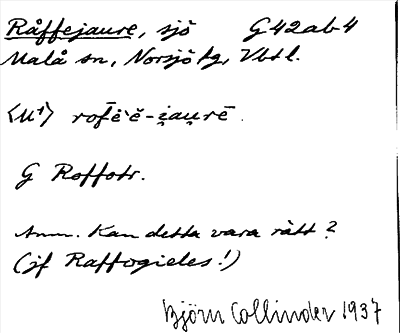 Råffejaure, sjö G42ab4
Malå sn, Norsjö tg, Vbtl.
⟨U¹⟩ rofē̆ĕ-i̯au̯rē.
G Roffotr.
Anm. Kan detta vara rätt?
(jf Raffogieles!)
Björn Collinder 1937